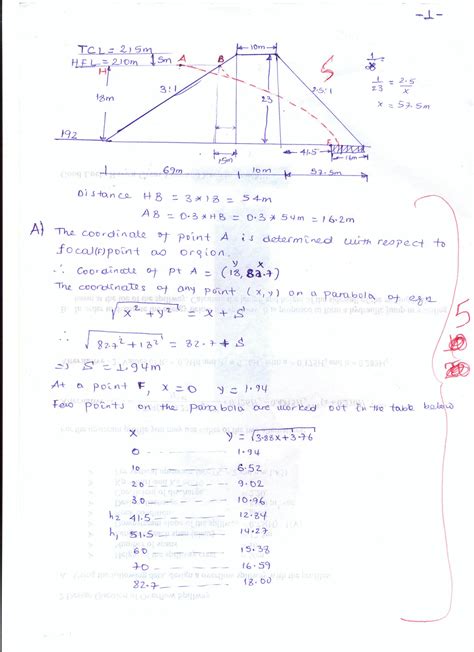 -1-
TCL = 215m
HFL = 210m
5m
A
B
10m
H
18m
3:1
23
2.5:1
S
1/23 = 2.5/x
x = 57.5m
192
F
41.5
16m
15m
69m
10m
57.5m
Distance HB = 3*18 = 54m
AB = 0.3*HB = 0.3*54m = 16.2m
A) The coordinate of point A is determined with respect to
focal(F)point as orgion.
∴ Coordinate of pt A = (18, 82.7)
y x
The coordinates of any point (x,y) on a parabola of eqn
√x²+y² = x + S
∴ √82.7²+18² = 82.7 + S
⇒ S = 1.94m
At a point F, x = 0 y = 1.94
Few points on the parabola are worked out in the table below
x y = √3.88x+3.76
0 1.94
10 6.52
20 9.02
30 10.96
h₂ 41.5 12.84
h₁ 51.5 14.27
60 15.38
70 16.59
82.7 18.00
5